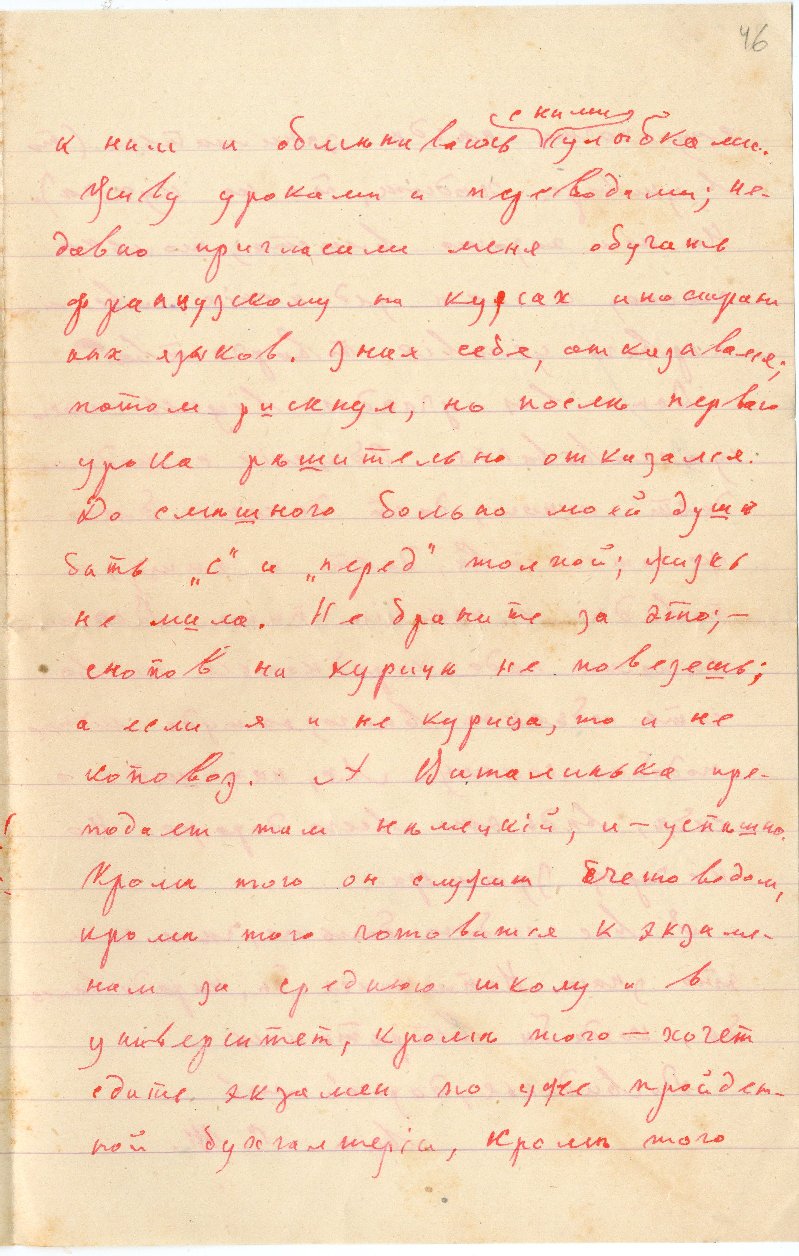 46
с ними
к ним и обмѣниваюсь улыбками.
Живу уроками и переводами; не-
давно пригласили меня обучать
французскому на курсах иностран
ных языков. Зная себя, отказывался;
потом рискнул, но послѣ перваго
урока рѣшительно отказался.
До смѣшного больно моей душѣ
быть „с“ и „перед“ толпой; жизнь
не мила. Не браните за это; —
снопов на курицѣ не повезешь;
а если я и не курица, то и не
коновоз. А Виталинька пре-
подает там нѣмецкій, и — успѣшно.
Кромѣ того он служит счетоводом,
кромѣ того готовится к экзаме-
нам за среднюю школу и в
университет, кромѣ того — хочет
сдать экзамен по уже пройден-
ной бухгалтеріи, кромѣ того